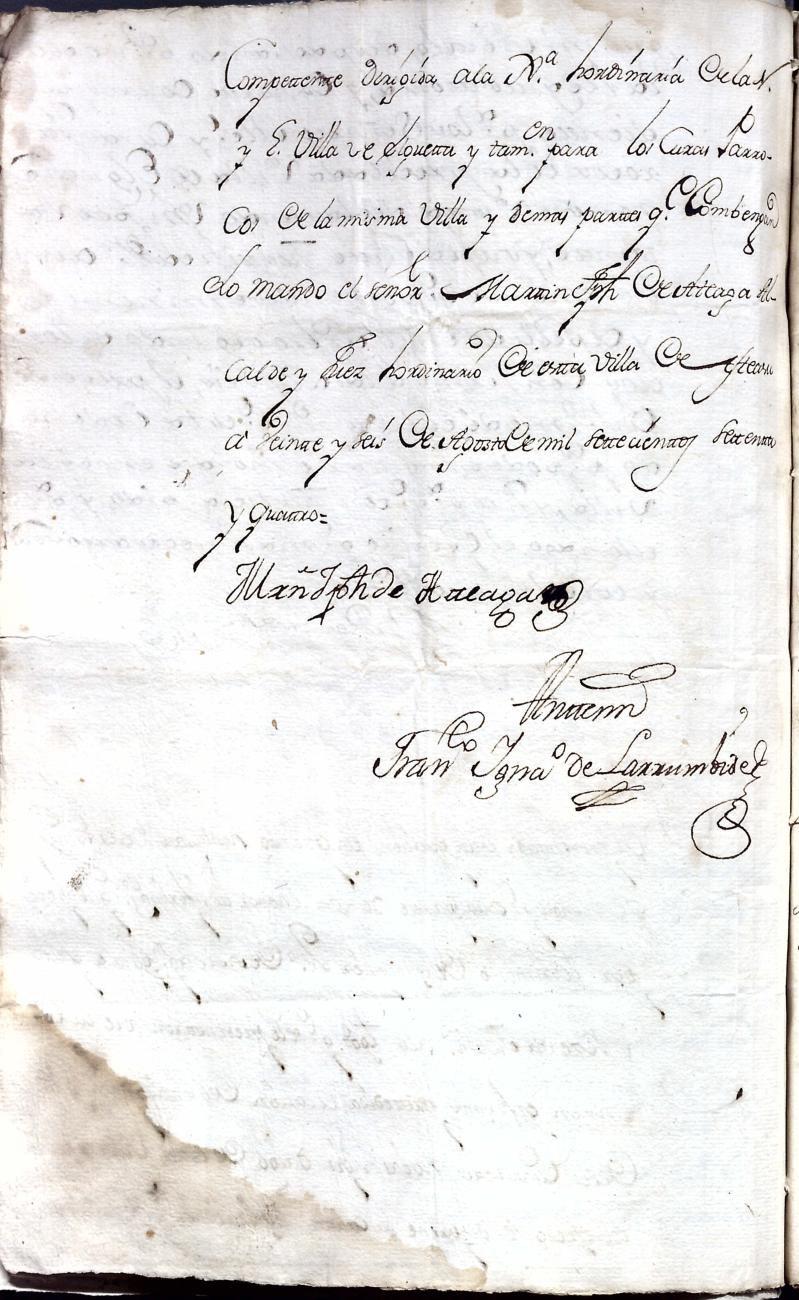 Competente dirigida a la N.ª hordinaria De la N.
y L. Villa de Elguetta y tam.en para los Curas Parro-
cos De la misma Villa y demas parttes q.e Combengan
Lo mando el señor Martin Jph De Atteaga Al-
calde y Juez hordinario De estta Villa De Ysteasu
a Veintte y seis De Agosto De mil settecienttos settentta
y quattro=
Mrñ Jph de Atteaga
Antte mi
Fran.co Ygna.o de Larrumbide